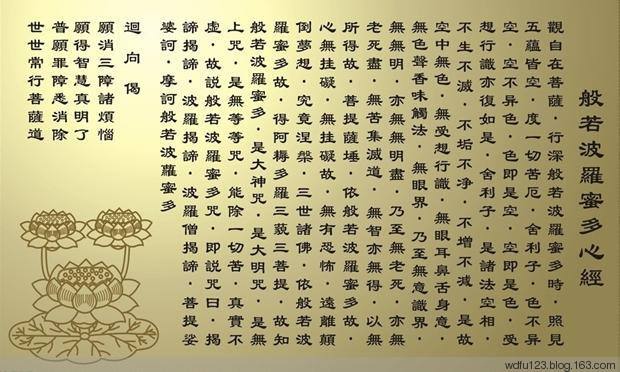 般若波羅蜜多心經
觀自在菩薩·行深般若波羅蜜多時·照見
五蘊皆空·度一切苦厄·舍利子·色不異
空·空不异色·色即是空·空即是色·受
想行識亦復如是·舍利子·是諸法空相·
不生不滅·不垢不净·不增不减·是故
空中無色·無受想行識·無眼耳鼻舌身意·
無色聲香味觸法·無眼界·乃至無意識界·
無無明·亦無無明盡·乃至無老死·亦無
老死盡·無苦集滅道·無智亦無得·以無
所得故·菩提薩埵·依般若波羅蜜多故·
心無挂礙·無挂礙故·無有恐怖·遠離顛
倒夢想·究竟涅槃·三世諸佛·依般若波
羅蜜多故·得阿耨多羅三藐三菩提·故知·
般若波羅蜜多·是大神咒·是大明咒·是無
上咒·是無等等咒·能除一切苦·真實不
虛·故説般若波羅蜜多咒·即説咒曰·揭
諦揭諦·波羅揭諦·波羅僧揭諦·菩提娑
婆訶·摩訶般若波羅蜜多
迴向偈
願消三障諸煩惱
願得智慧真明了
普願罪障悉消除
世世常行菩薩道
wdfu123.blog.163.com